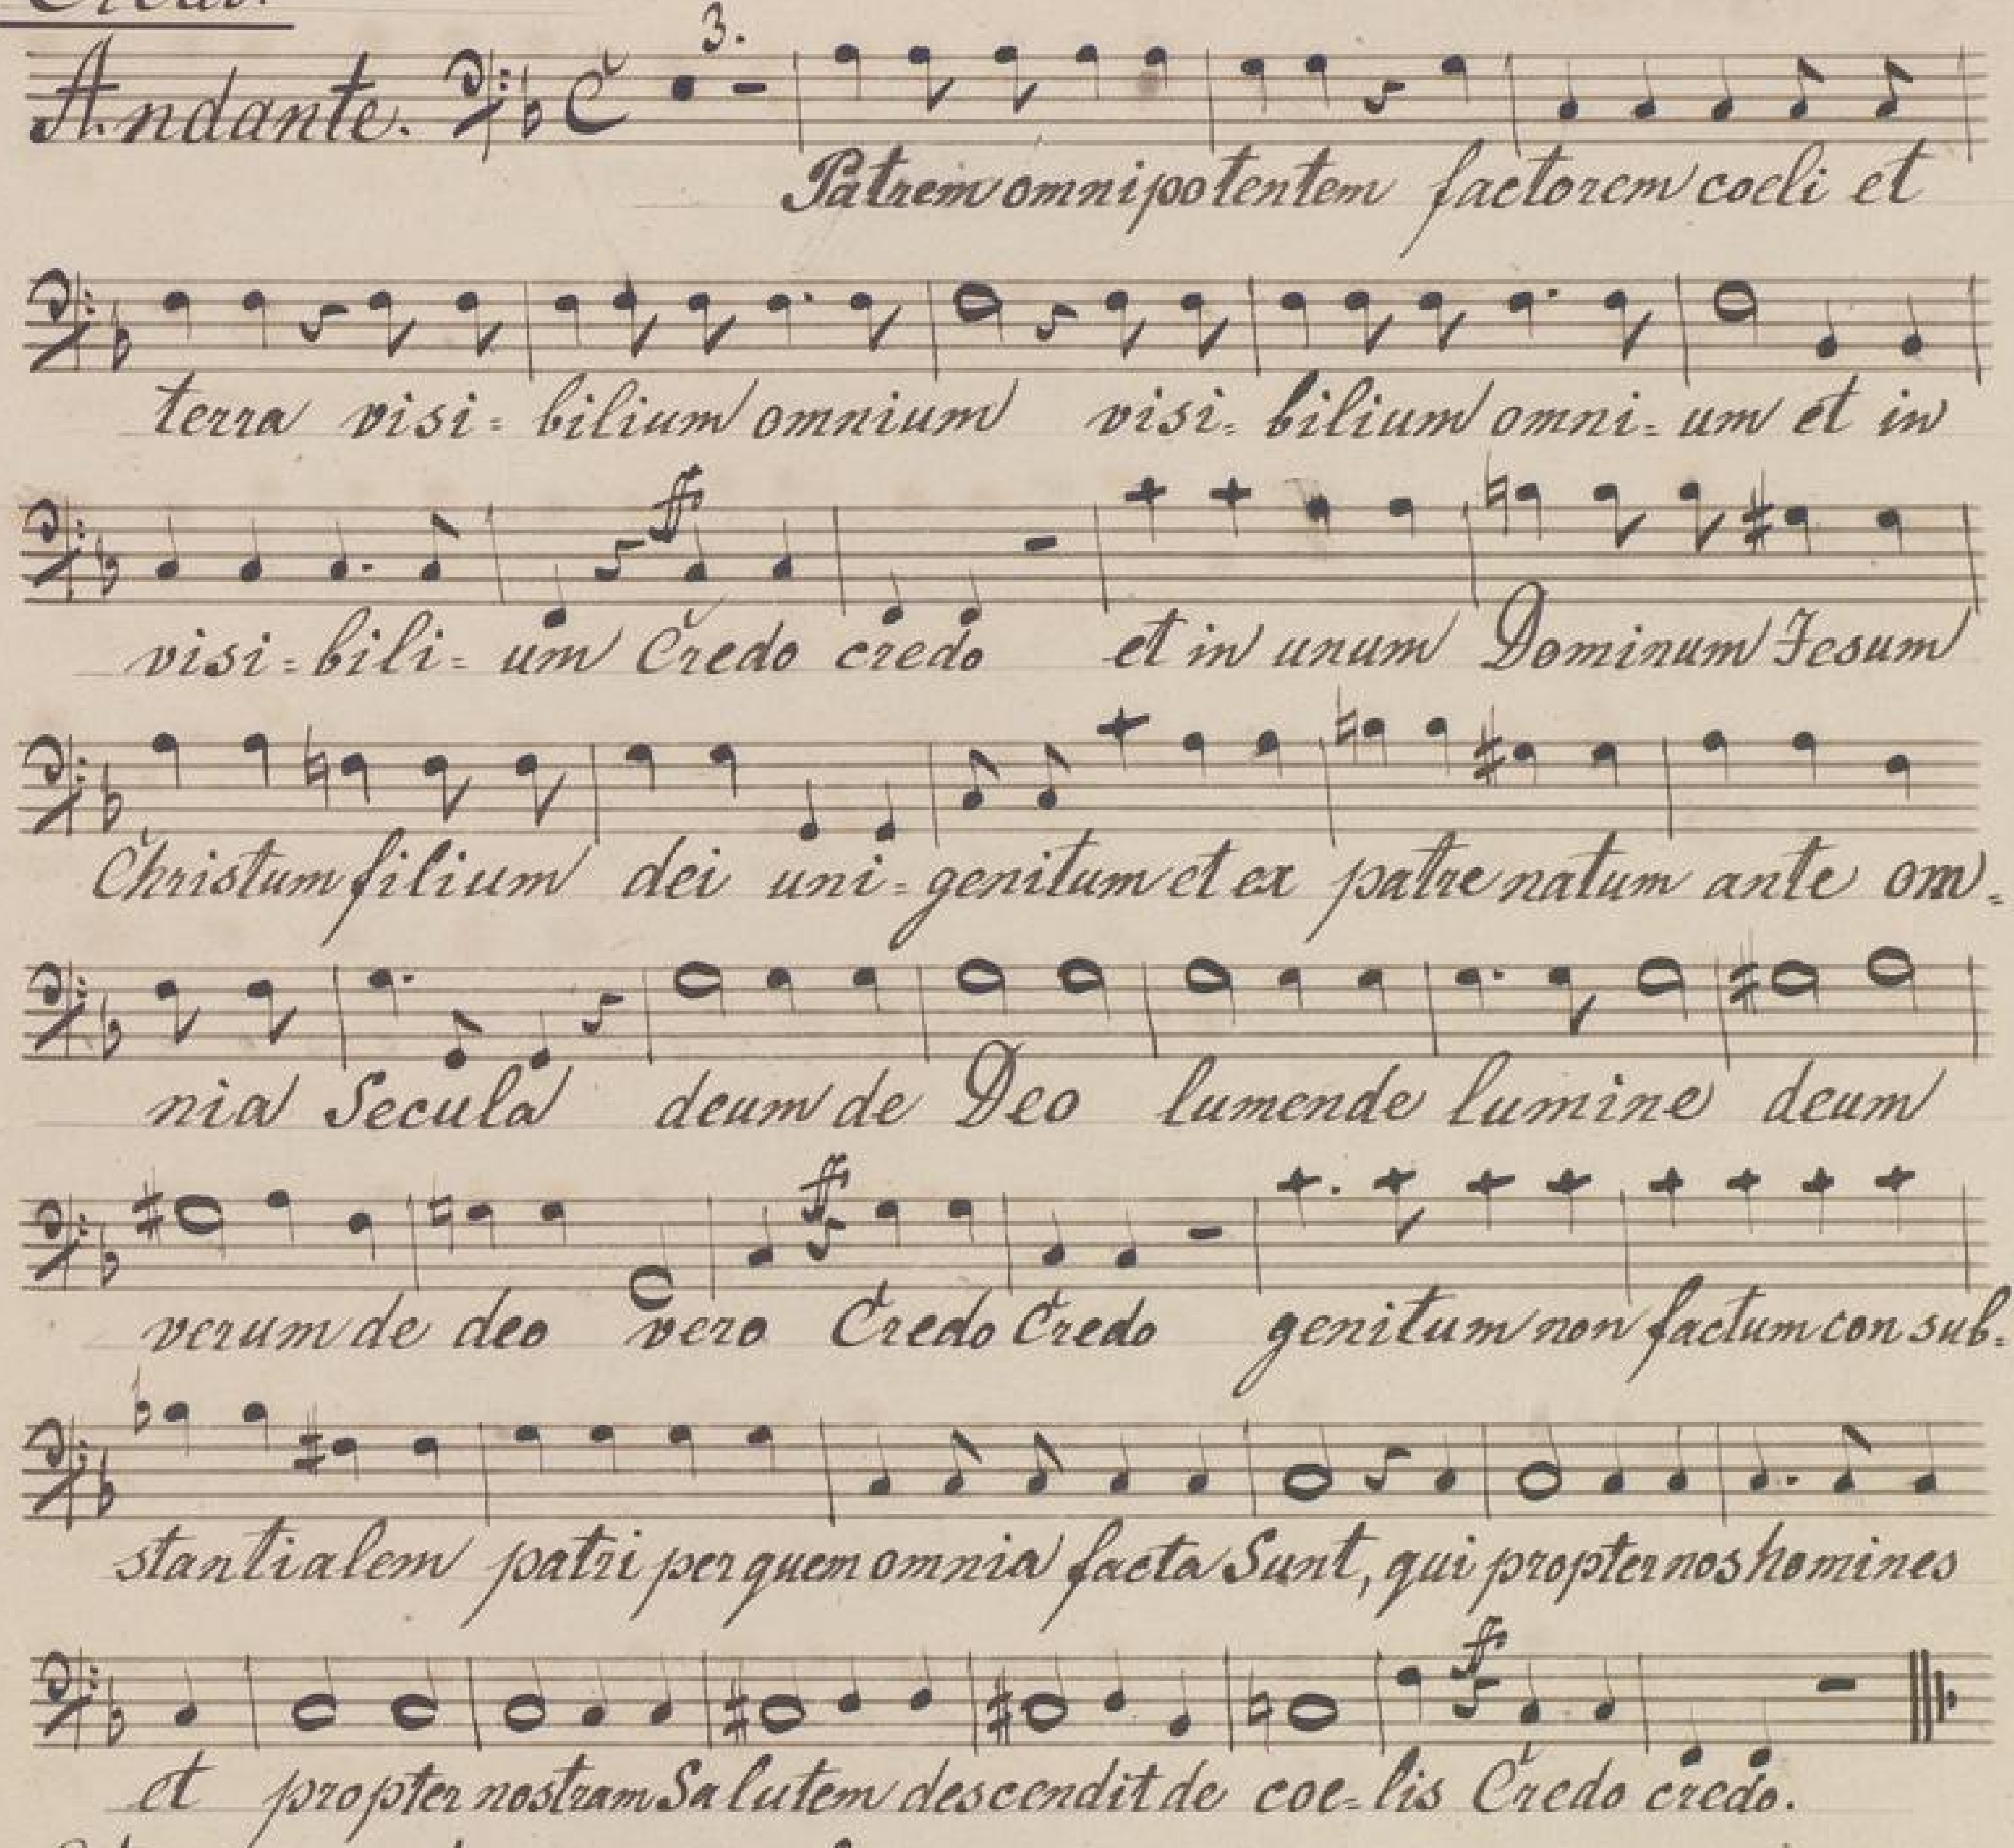 Credo.
3.
Andante.
Patrem omnipotentem factorem coeli et
terra visi= bilium omnium visi= bilium omni= um et in
ff
visi= bili= um Credo credo et in unum Dominum Jesum
Christum filium dei uni= genitum et ex patre natum ante om=
nia Secula deum de Deo lumen de lumine deum
ff
verum de deo vero Credo Credo genitum non factum con sub=
stantialem patri per quem omnia facta Sunt, qui propter nos homines
ff
et propter nostram Salutem descendit de coe= lis Credo credo.